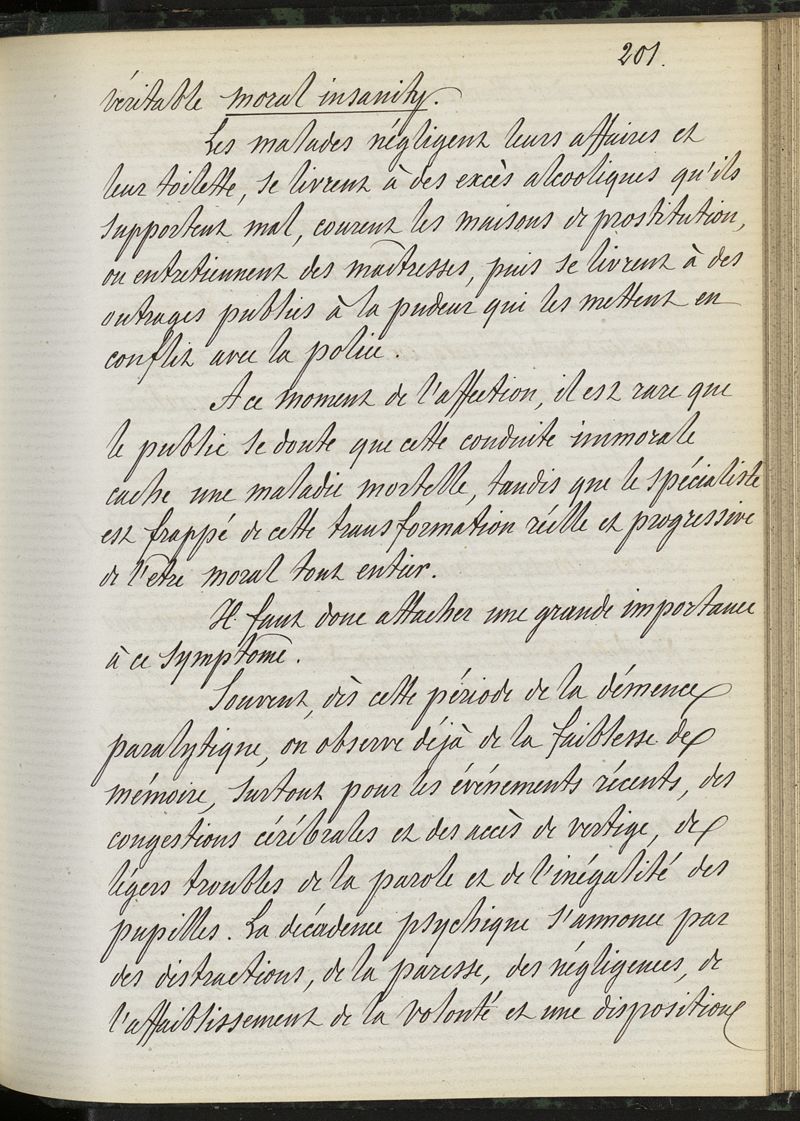 201.
véritable moral insanity.
Les malades négligent leurs affaires et
leur toilette, se livrent à des excès alcooliques qu'ils
supportent mal, courent les maisons de prostitution,
ou entretiennent des maîtresses, puis se livrent à des
outrages publics à la pudeur qui les mettent en
conflit avec la police.
A ce moment de l'affection, il est rare que
le public se doute que cette conduite immorale
cache une maladie mortelle, tandis que le spécialiste
est frappé de cette transformation réelle et progressive
de l'être moral tout entier.
Il faut donc attacher une grande importance
à ce symptôme.
Souvent, dès cette période de la démence
paralytique, on observe déjà de la faiblesse de
mémoire, surtout pour les événements récents, des
congestions cérébrales et des accès de vertige, de
légers troubles de la parole et de l'inégalité des
pupilles. La décadence psychique s'annonce par
des distractions, de la paresse, des négligences, de
l'affaiblissement de la volonté et une disposition